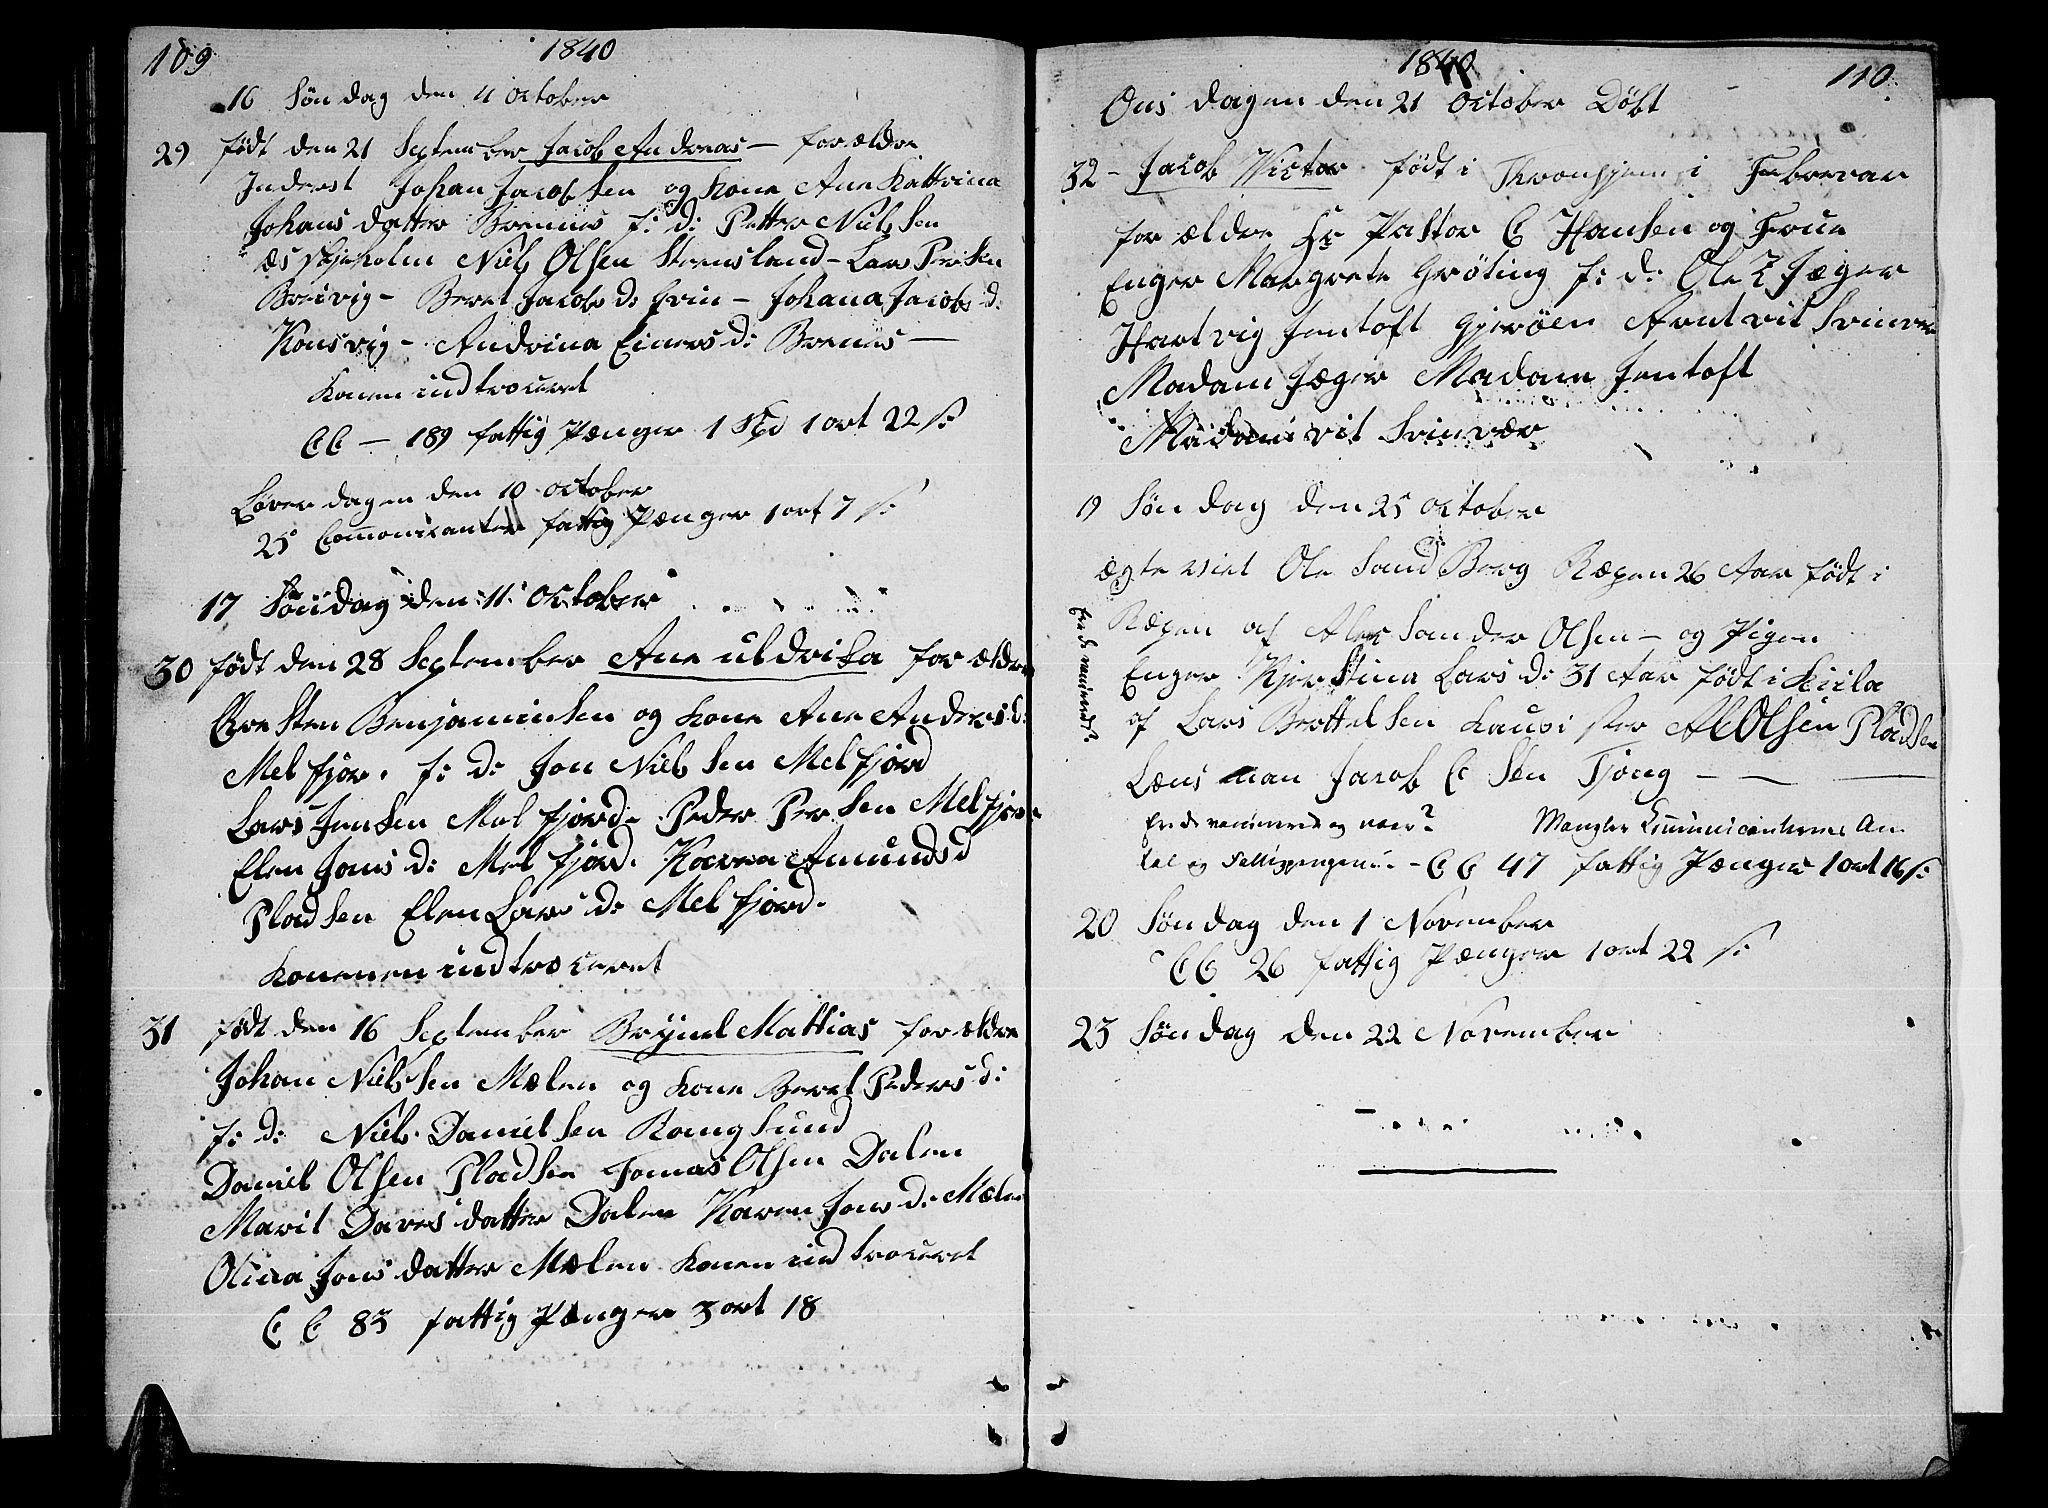 109
1840
16 Søndag den 4 october
29 født den 21 September Jacob Andreas – forældre
Inderst Johan Jacobsen og kone Ane Kattrina
Johans datter Brennes f: d: Petter Nielsen
Niels Olsen Stensland – Lars
Breivig – Beret Jacobs d: Grin – Johana Jacobs d:
Konsvig – Andrina Einers d: Brenes –
konen indtroceret
CC – 189 fattig Pænger 1 Spd 1 ort 22 s:
Løver dagen den 10 october
25 Commonicanter fattig Pænger 1 ort 7 s:
17 Søndag den 11 October
30 født den 28 September Ane uldrika forældre
Christen Benjaminsen og kone Ane Anders d:
Melfjor. f: d: Jon Nielsen Melfjord
Lars Jensen Melfjord. Peder Persen Melfjord
Elen Jons d: Melfjord. Karen Amunds d
Pladsen Elen Lars d: Melfjord.
konenen indtroceret
31 født den 16 September Brynel Mattias forældre
Johan Nielsen Mælen og kone Beret Peders d:
f: d: Niels Danielsen Rangsund
Daniel Olsen Pladsen Tomas Olsen Dalen
Marit Daves datter Dalen Karen Jons d: Mælen
Olina Jons datter Mælen konen indtroceret
CC 83 fattig Pænger 3 ort 18
1840
110
Ons dagen den 21 October Døbt
32 – Jacob Victor født i Thronhjem i Febrevar
forældre Hr Pastor C Hansen og Frue
Enger Margrete Grøting f: d: Ole Jæger
Hartvig Jentoft Gjerøen Arnt vit Svinvær
Madam Jæger Madam Jentoft
Madam vit Svinvær
19 Søndag den 25 october
ægte viet Ole Sand Berg Ræpen 26 Aar født i
Ræpen af Aleksander Olsen – og Pigen
Enger Kjerstina Lars d: 31 Aar født i Kiila
af Lars Bertelsen kausister A Olsen Pladsen
Lænsman Jacob C Sen Tjong –
Er de vaccinerede
Er de vaccinerede og naar? Mangler Communicanternes An-
tal og Fattigpengene – CC 47 fattig Pænger 1 ort 16 s:
20 Søndag den 1 November
CC 26 fattig Pænger 1 ort 22 s:
23 Søndag den 22 November